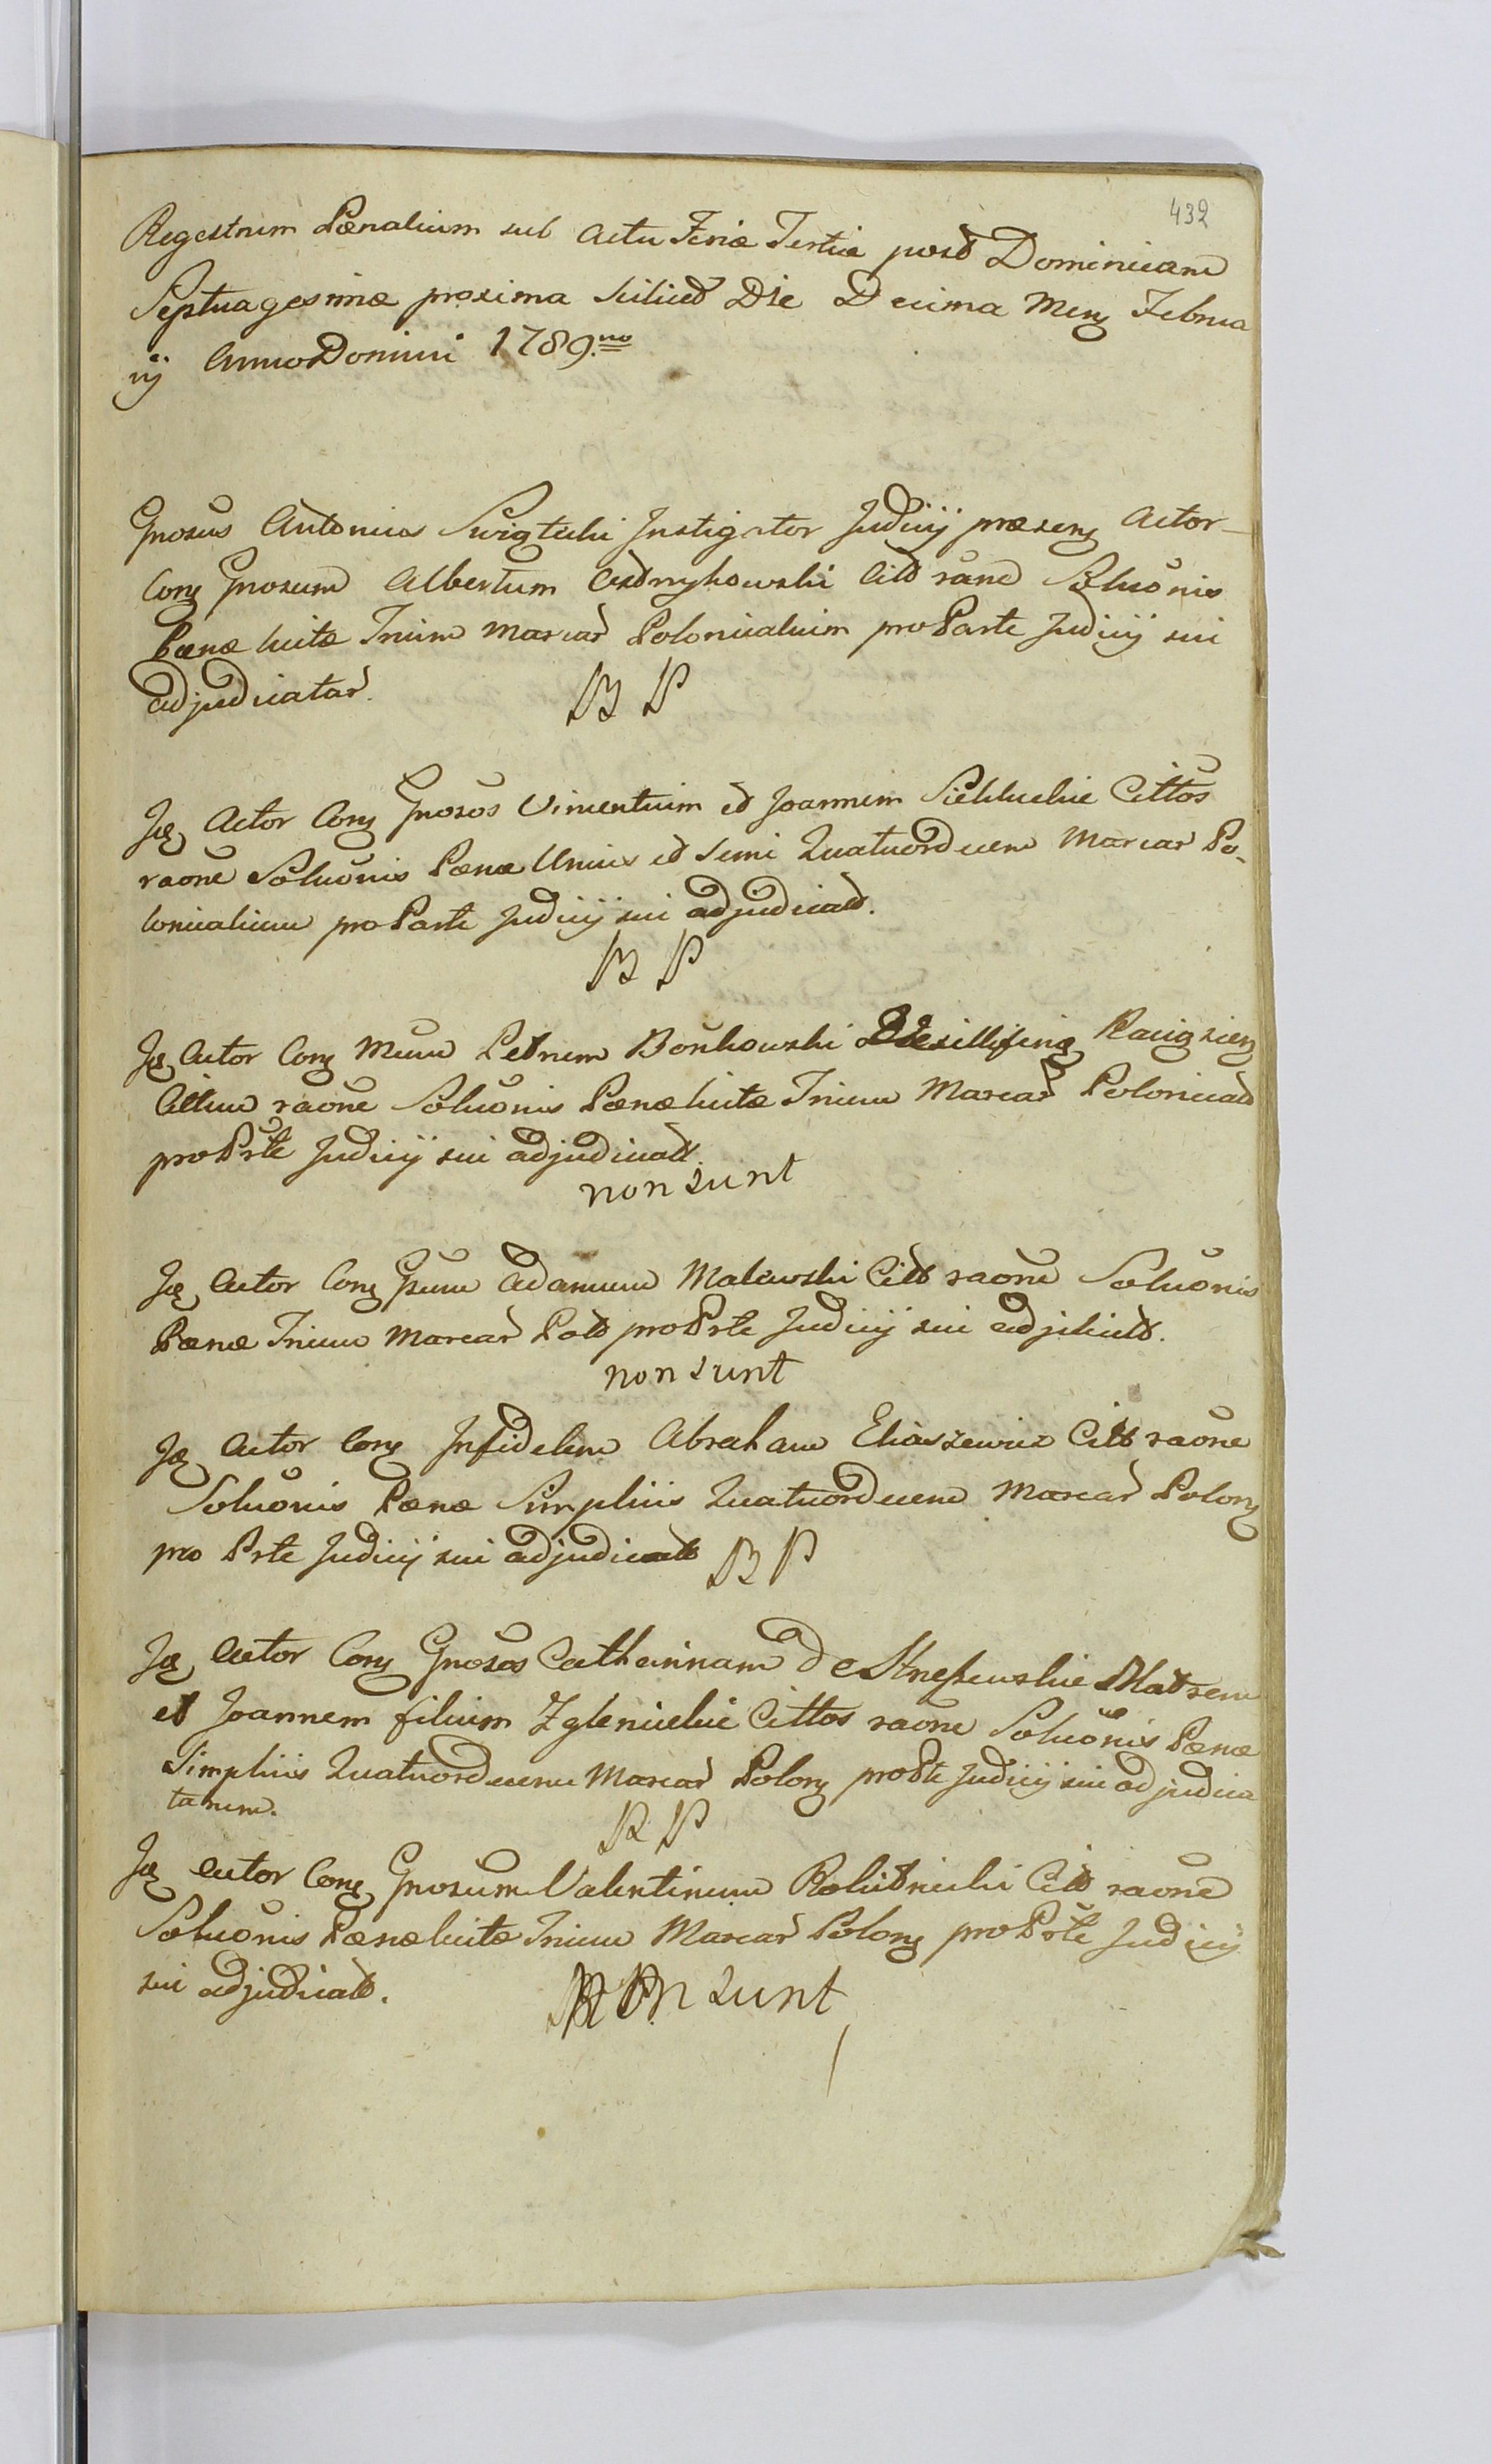 432
Regestrum Pænalium sub Actu Feriæ Tertiæ post Dominicam
Septuagesimæ proxima scilicet Die Decima Mens Februa
rij Anno Domini 1789.no
Gnosus Antonius Swięticki Instigator Judicij præsens Actor
Cons Gnosum Albertum Citt raone Soluonis
Pænæ luitæ Trium Marcar Polonicalium pro Parte Judicij sui
adjudicatar.
B P
Id Actor Cons Gnosos Vincentium et Joannem Cittos
raone Soluonis Pænæ Unius et Semi Quatuordecem Marcar Po-
lonicalium pro Parte Judicij sui adjudicat.
B P
Id Actor Cons Petrum Bońkowski Raciąziens
Cittum raone Soluonis Pænæ luitæ Trium Marcar Polonicat
pro Prte Judicij sui adjudicatt.
non sunt
Id Actor Cons Gsum Adamum Malewski Citt raone Soluonis
Pænæ Trium Marcar Polt pro Prte Judicij sui
non sunt
Id Actor Cons Infidelem Abraham Eliaszewicz Citt raone
Soluonis Pænæ Simplicis Quatuordecem Marcar Polons
pro Prte Judicij sui adjudicatt B P
Id Actor Cons Gnosos Catharinam De Matrem
et Joannem filium Zglenickie Cittos raone Soluonis Pænæ
Simplicis Quatuordecem Marcar Polons pro Prte Judicij sui adjudica
tarum.
B P
Id Actor Cons Gnosum Valentinum Rokitnicki Citt raone
Soluonis Pænæ luitæ Trium Marcar Polons pro Prte Judicij
sui adjudicatt.
non sunt